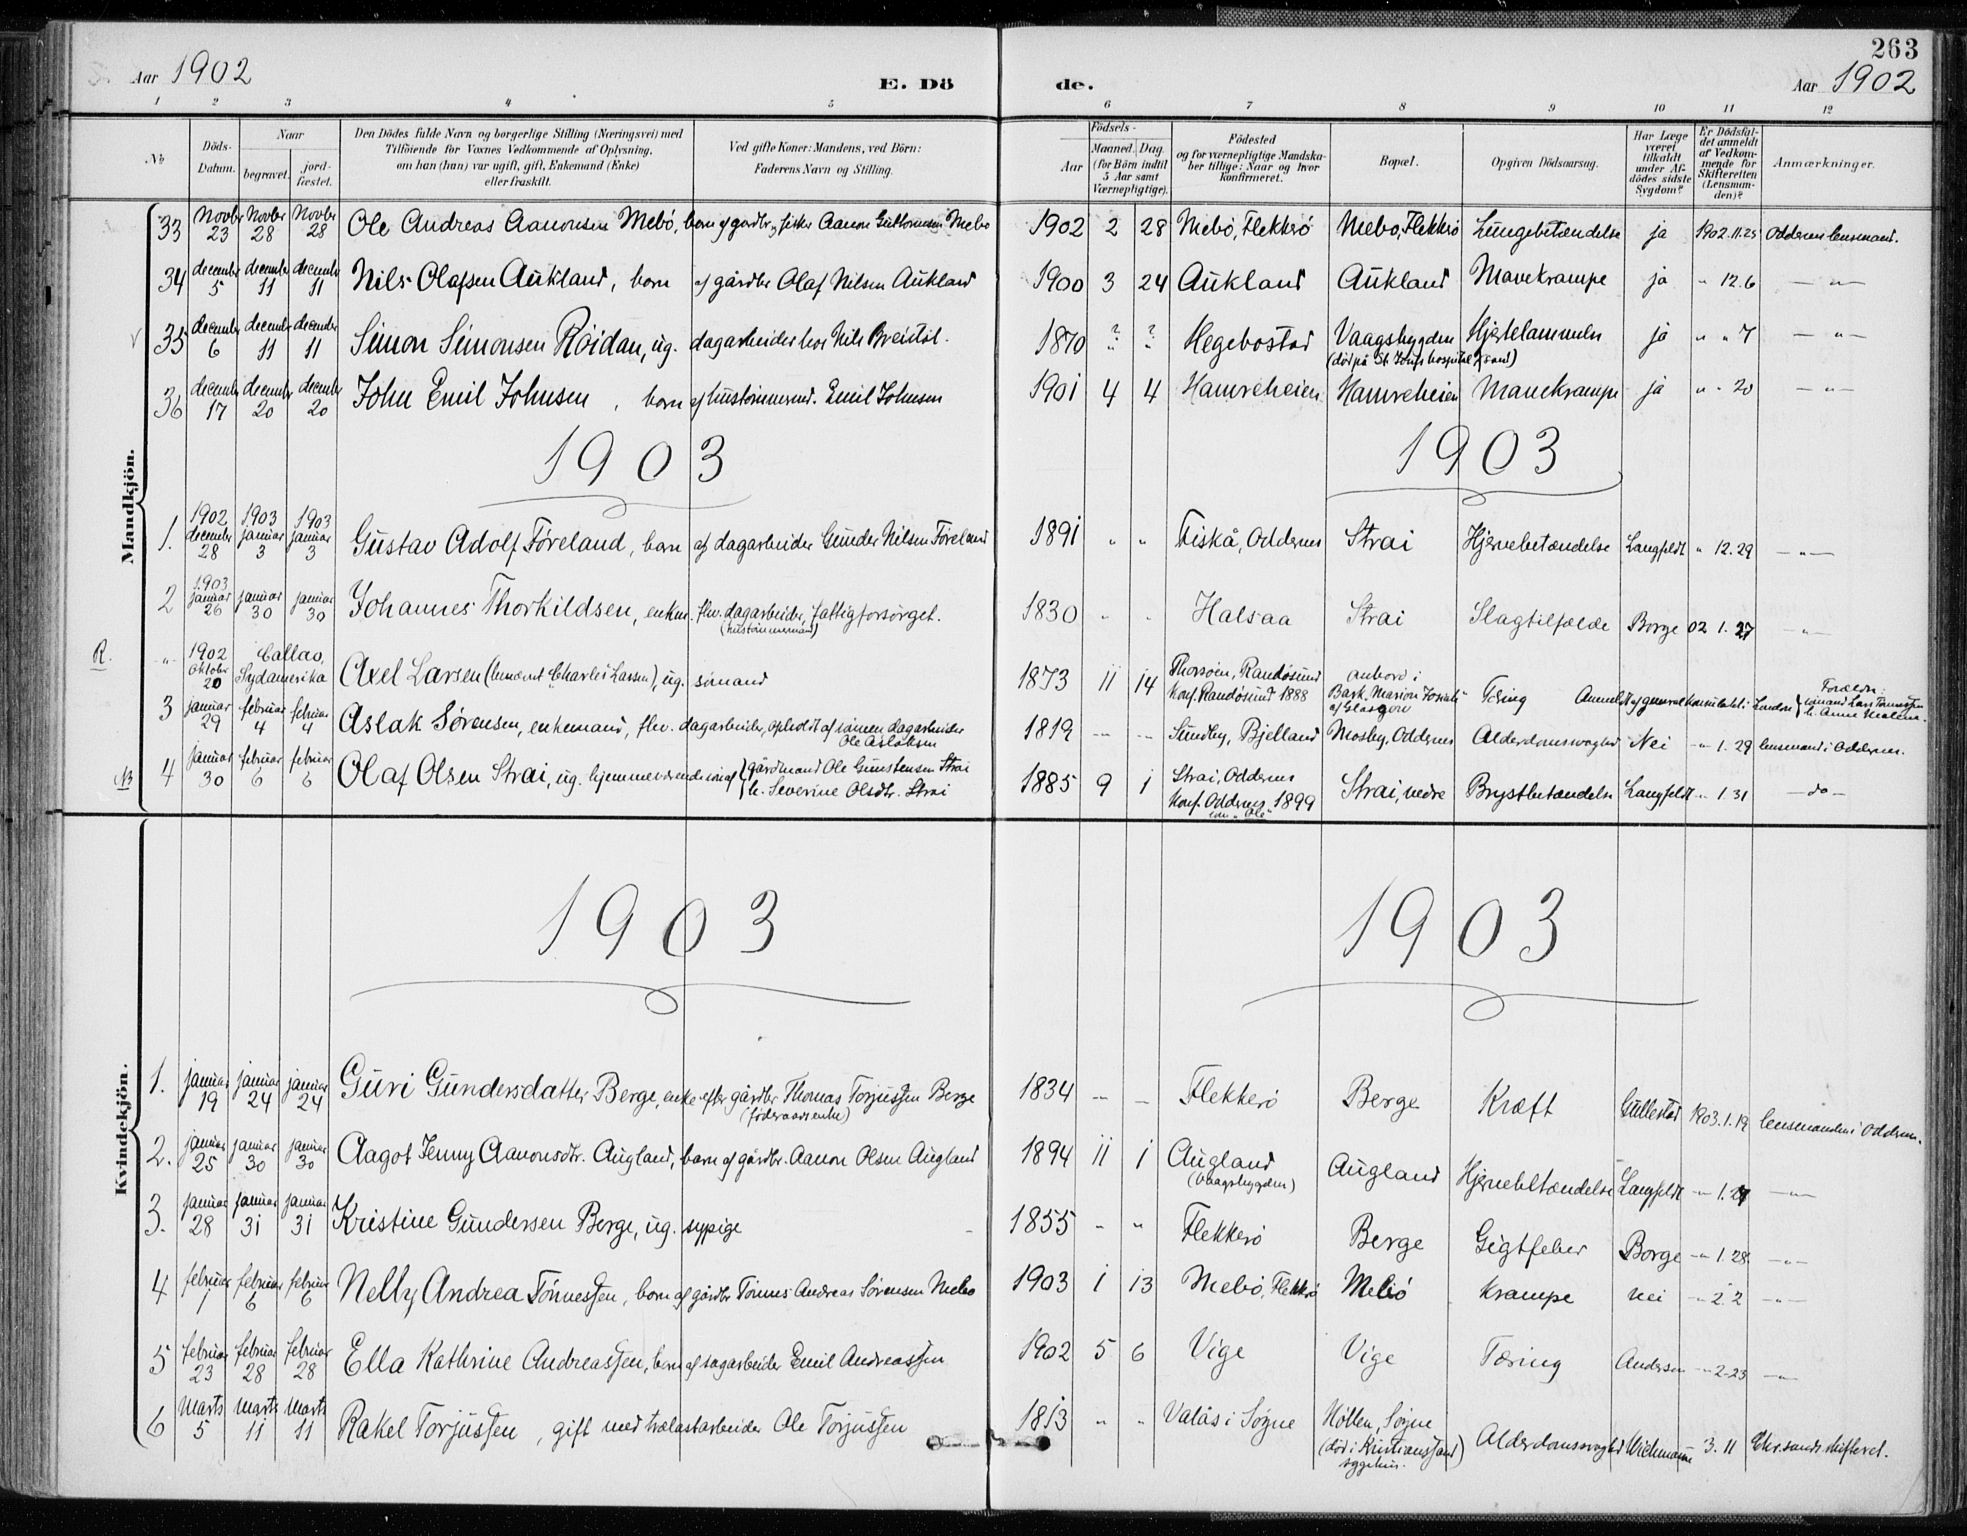 263
Aar 1902
E. Dö
de.
Aar 1902
1 2 3 4 5 6 7 8 9 10 11 12
№
Döds-Datum.
Naar
begravet.
jord-fæstet.
Den Dödes fulde Navn og borgerlige Stilling (Næringsvei) med
Tilföiende for Voxnes Vedkommende af Oplysning,
om han (hun) var ugift, gift, Enkemand (Enke)
eller fraskilt.
Ved gifte Koner: Mandens, ved Börn:
Faderens Navn og Stilling.
Födsels-
Aar
Maaned. Dag.
(for Börn indtil
5 Aar samt
Værnepligtige).
Födested
og for værnepligtige Mandska-
ber tillige: Naar og hvor
konfirmeret.
Bopæl.
Opgiven Dödsaarsag.
Har Læge
været
tilkaldt
under Af-
dödes sidste
Sygdom?
Er Dödsfal-
det anmeldt
af Vedkom-
mende for
Skifteretten
(Lensman-
den)?
Anmærkninger.
Mandkjön.
33 Novbr 23 Novbr 28 Novbr 28 Ole Andreas Aanonsen Mebö, barn af gårdbr. og fisker Aanon Guttormsen Mebö 1902 2 28 Mebö, Flekkerö Mebö, Flekkerö Lungebetændelse ja 1902.11.25 Oddernes lensmand.
34 december 5 december 11 december 11 Nils Olafsen Aukland, barn af gårdbr Olaf Nilsen Aukland 1900 3 24 Aukland Aukland Mavekrampe ja " 12.6 — " —
35 december 6 december 11 december 11 Simon Simonsen Röidan, ug. dagarbeider hos Nils Breidal. 1870 ? ? Hegebostad Vaagsbygden Hjertelammelse ja " " 7 — " —
36 december 17 december 20 december 20 John Emil Johnsen, barn af hustömmermd. Emil Johnsen 1901 4 4 Hamreheien Hamreheien Mavekrampe ja " " 20 — " —
1903 1903
1. 1902 december 28 1903 januar 3 1903 januar 3 Gustav Adolf Föreland, barn af dagarbeider Gunder Nilsen Föreland 1891 " " Fiskå, Oddernes Strai Hjernebetændelse Langfeldt " 12.29 — " —
2 1903 januar 26 januar 30 januar 30 Johannes Thorkildsen, enkem. fhv. dagarbeider, fattigforsörget.
(hustömmermand) 1830 " " Halsaa Strai Slagtilfælde Borge 02 1.27 — " —
R. " 1902 oktober 20 Callao, Sydamerika Axel Larsen (benævnt Charles Larsen), ug. sömand 1873 11 14 Thorsöen, Randösund
Konf. Randösund 1888 anbord i
Bark "Marion Josiah"
af Glasgow Tæring Anmeldt af generalkonsulatet i London Forældre: sömand Lars Tönnessen
h. Anne Malene.
3 januar 29 februar 4 februar 4 Aslak Sørensen, enkemand, fhv. dagarbeider, opholdt af sönnen dagarbeider
Ole Aslaksen 1819 — — Sundby, Bjelland Mosby, Oddernes Alderdomssvaghed Nei " 1.29 lensmand i Oddernes.
NB 4 januar 30 februar 6 februar 6 Olaf Olsen Strai, ug. hjemmeværende sön af gårdmand Ole Gunstensen Strai
h. Severine Olsdtr. Strai 1885 9 1 Strai, Oddernes
Konf. Oddernes 1899
som "Ole" Strai, nedre Brystbetændelse Langfeldt " 1.31 — do —
Kvindekjön.
1903 1903
1. januar 19 januar 24 januar 24 Guri Gundersdatter Berge, enke efter gårdbr Thomas Torjussen Berge
(föderaadsenke) 1834 — — Flekkerö Berge Kræft Gullestad 1903.1.19 lensmanden i Oddernes.
2. januar 25 januar 30 januar 30 Aagot Jenny Aanonsdtr. Augland, barn af gårdbr. Aanon Olsen Augland 1894 11 1 Augland
(Vaagsbygden) Augland Hjernebetændelse Langfeldt — " 1.27 — " —
3. januar 28 januar 31 januar 31 Kristine Gundersen Berge, ug. sypige 1855 " " Flekkerö Berge Gigtfeber Borge — " 1.28 — " —
4 februar 1 februar 6 februar 6 Nelly Andrea Tönnessen, barn af gårdbr Tönnes Andreas Sörensen Mebö 1903 1 13 Mebö, Flekkerö Mebö Krampe nei — " 2.2 — " —
5 februar 23 februar 28 februar 28 Ella Kathrine Andreassen, barn af sagarbeider Emil Andreassen 1902 5 6 Vige Vige Tæring Andersen — " 2.23 — " —
6 Marts 5 Marts 11 Marts 11 Rakel Torjussen, gift med trælastarbeider Ole Torjussen 1813 " " Valås i Søgne Höllen, Søgne
(död i Kristianssand
sygehus.) Alderdomssvaghed Wichmann 3.11 Chr.sands skifteret.